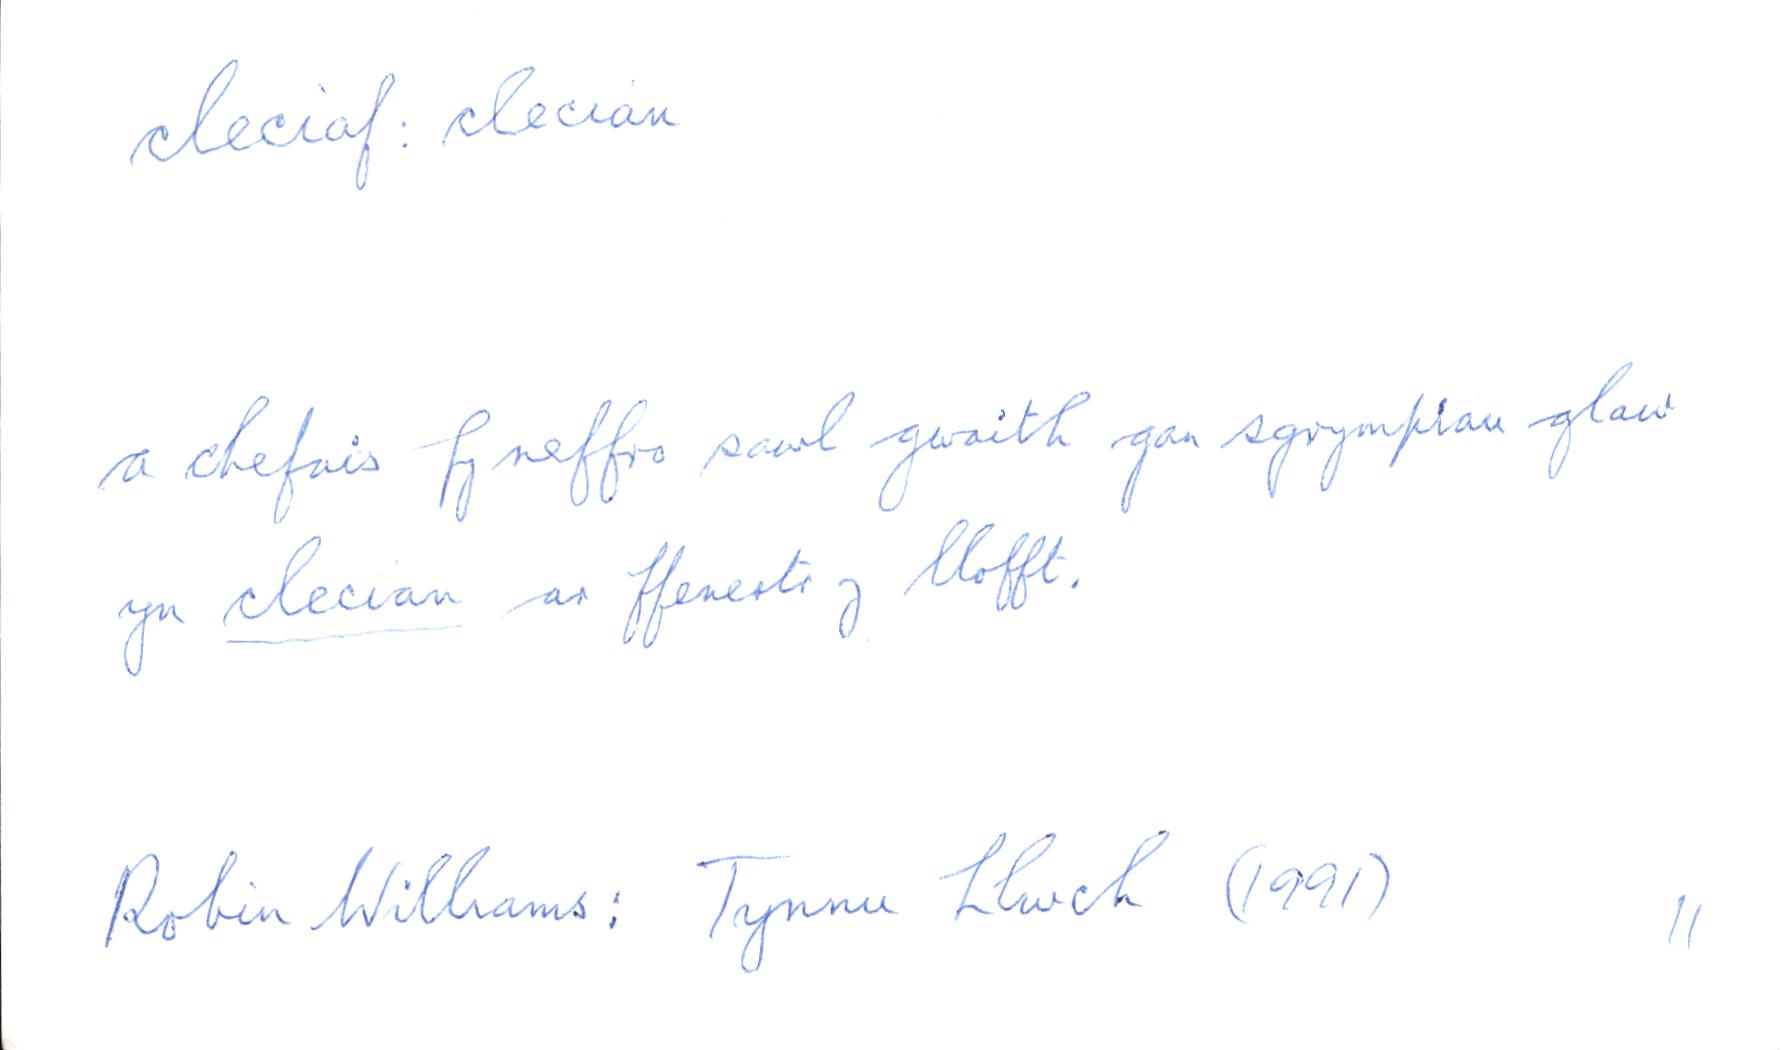 cleciaf: clecian
a chefais fy neffro sawl gwaith gan sgrympiau glaw
yn clecian ar ffenestr y llofft.
Robin Williams: Tynnu Llwch (1991) 11